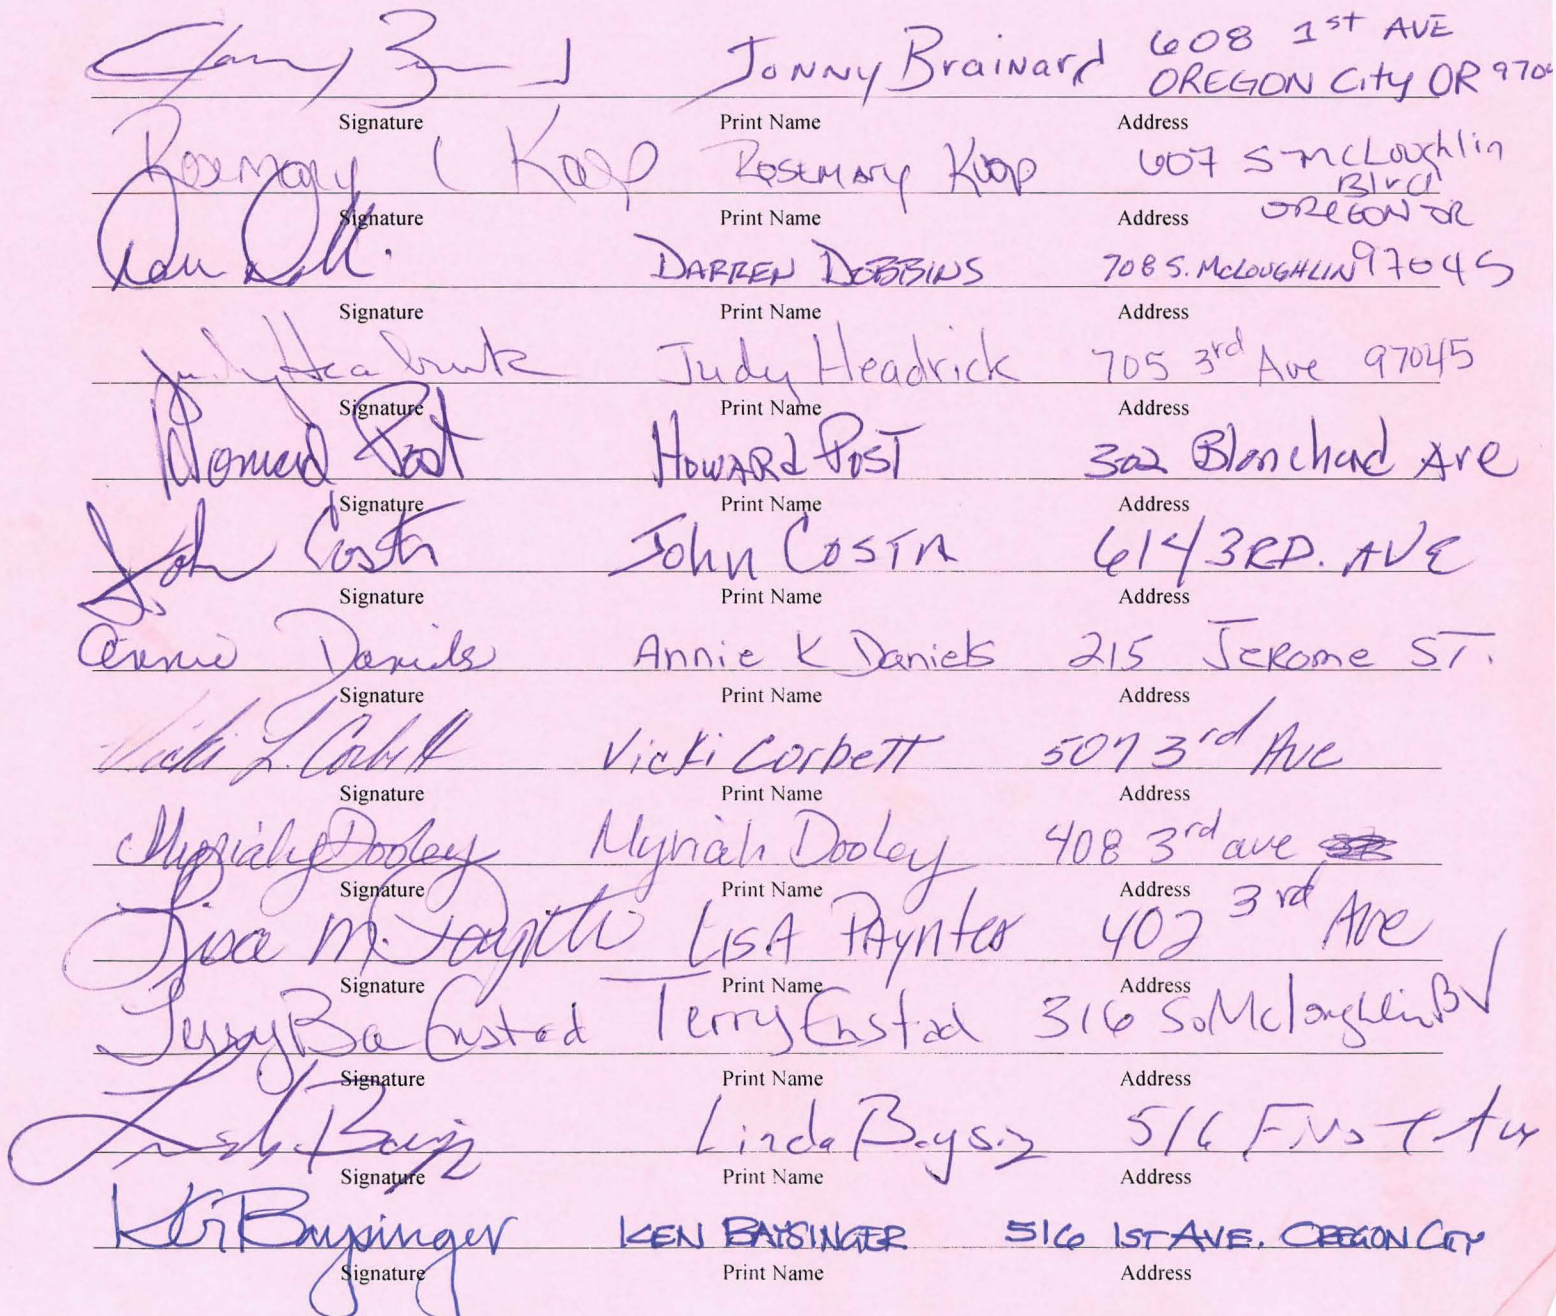 Jonny Brainard 608 1st AVE
OREGON City OR 970
Signature Print Name Address
Rosemary L Koop Rosemary Koop 607 S McLoughlin
Blvd
Signature Print Name Address OREGON OR
DARREN DOBBINS 708 S. McLOUGHLIN 97045
Signature Print Name Address
Judy Headrick Judy Headrick 705 3rd Ave 97045
Signature Print Name Address
Howard Post HOWARd POST 302 Blanchard Ave
Signature Print Name Address
John Costa John COSTA 614 3RD. AVE
Signature Print Name Address
Annie Daniels Annie K Daniels 215 Jerome ST.
Signature Print Name Address
Vicki L. Corbett Vicki Corbett 507 3rd Ave
Signature Print Name Address
Myriah Dooley Myriah Dooley 408 3rd ave
Signature Print Name Address
Lisa M. Paynter LISA PAynter 402 3rd Ave
Signature Print Name Address
Terry Enstad Terry Enstad 316 So McLoughlin BV
Signature Print Name Address
Linda 516
Signature Print Name Address
Ken Baysinger KEN BAYSINGER 516 1ST AVE. OREGON CITY
Signature Print Name Address